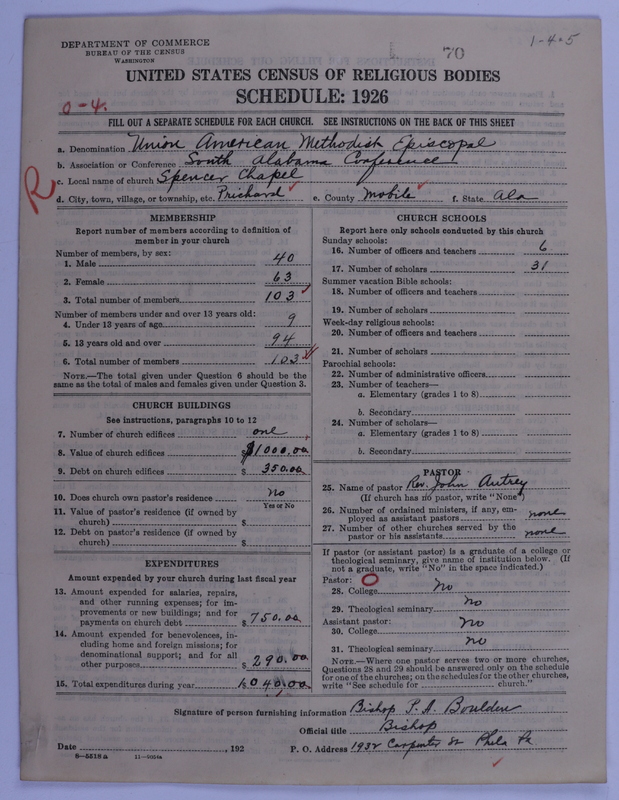 DEPARTMENT OF COMMERCE
BUREAU OF THE CENSUS
WASHINGTON
70
1-4-5
UNITED STATES CENSUS OF RELIGIOUS BODIES
SCHEDULE: 1926
0-4.
FILL OUT A SEPARATE SCHEDULE FOR EACH CHURCH. SEE INSTRUCTIONS ON THE BACK OF THIS SHEET
R
a. Denomination Union American Methodist Episcopal
b. Association or Conference South Alabama Conference
c. Local name of church Spencer Chapel
d. City, town, village, or township, etc. Prichard e. County Mobile f. State Ala
MEMBERSHIP
Report number of members according to definition of
member in your church
Number of members, by sex:
1. Male 40
2. Female 63
3. Total number of members 103
Number of members under and over 13 years old:
4. Under 13 years of age 9
5. 13 years old and over 94
6. Total number of members 103
NOTE.—The total given under Question 6 should be
same as the total of males and females given under Question 3.
CHURCH BUILDINGS
See instructions, paragraphs 10 to 12
7. Number of church edifices one
8. Value of church edifices $1000.00
9. Debt on church edifices $ 350.00
10. Does church own pastor's residence no
Yes or No
11. Value of pastor's residence (if owned by
church) $
12. Debt on pastor's residence (if owned by
church) $
EXPENDITURES
Amount expended by your church during last fiscal year
13. Amount expended for salaries, repairs,
and other running expenses; for im-
provements or new buildings; and for
payments on church debt $ 750.00
14. Amount expended for benevolences, in-
cluding home and foreign missions; for
denominational support; and for all
other purposes $ 290.00
15. Total expenditures during year 1040.00
CHURCH SCHOOLS
Report here only schools conducted by this church
Sunday schools:
16. Number of officers and teachers 6
17. Number of scholars 31
Summer vacation Bible schools:
18. Number of officers and teachers
19. Number of scholars
Week-day religious schools:
20. Number of officers and teachers
21. Number of scholars
Parochial schools:
22. Number of administrative officers
23. Number of teachers—
a. Elementary (grades 1 to 8)
b. Secondary
24. Number of scholars—
a. Elementary (grades 1 to 8)
b. Secondary
PASTOR
25. Name of pastor Rev. John Autrey
(If church has no pastor, write "None")
26. Number of ordained ministers, if any, em-
ployed as assistant pastors none
27. Number of other churches served by the
pastor or his assistants none
If pastor (or assistant pastor) is a graduate of a college or
theological seminary, give name of institution below. (If
not a graduate, write "No" in the space indicated.)
Pastor: O
28. College no
29. Theological seminary no
Assistant pastor:
30. College no
31. Theological seminary no
NOTE.—Where one pastor serves two or more churches,
Questions 28 and 29 should be answered only on the schedule
for one of the churches; on the schedules for the other churches,
write "See schedule for church."
Signature of person furnishing information Bishop P. A. Boulden
Official title Bishop
Date , 192 P. O. Address 1932 Carpenter St Phila Pa.
8-5518a 11-9054a